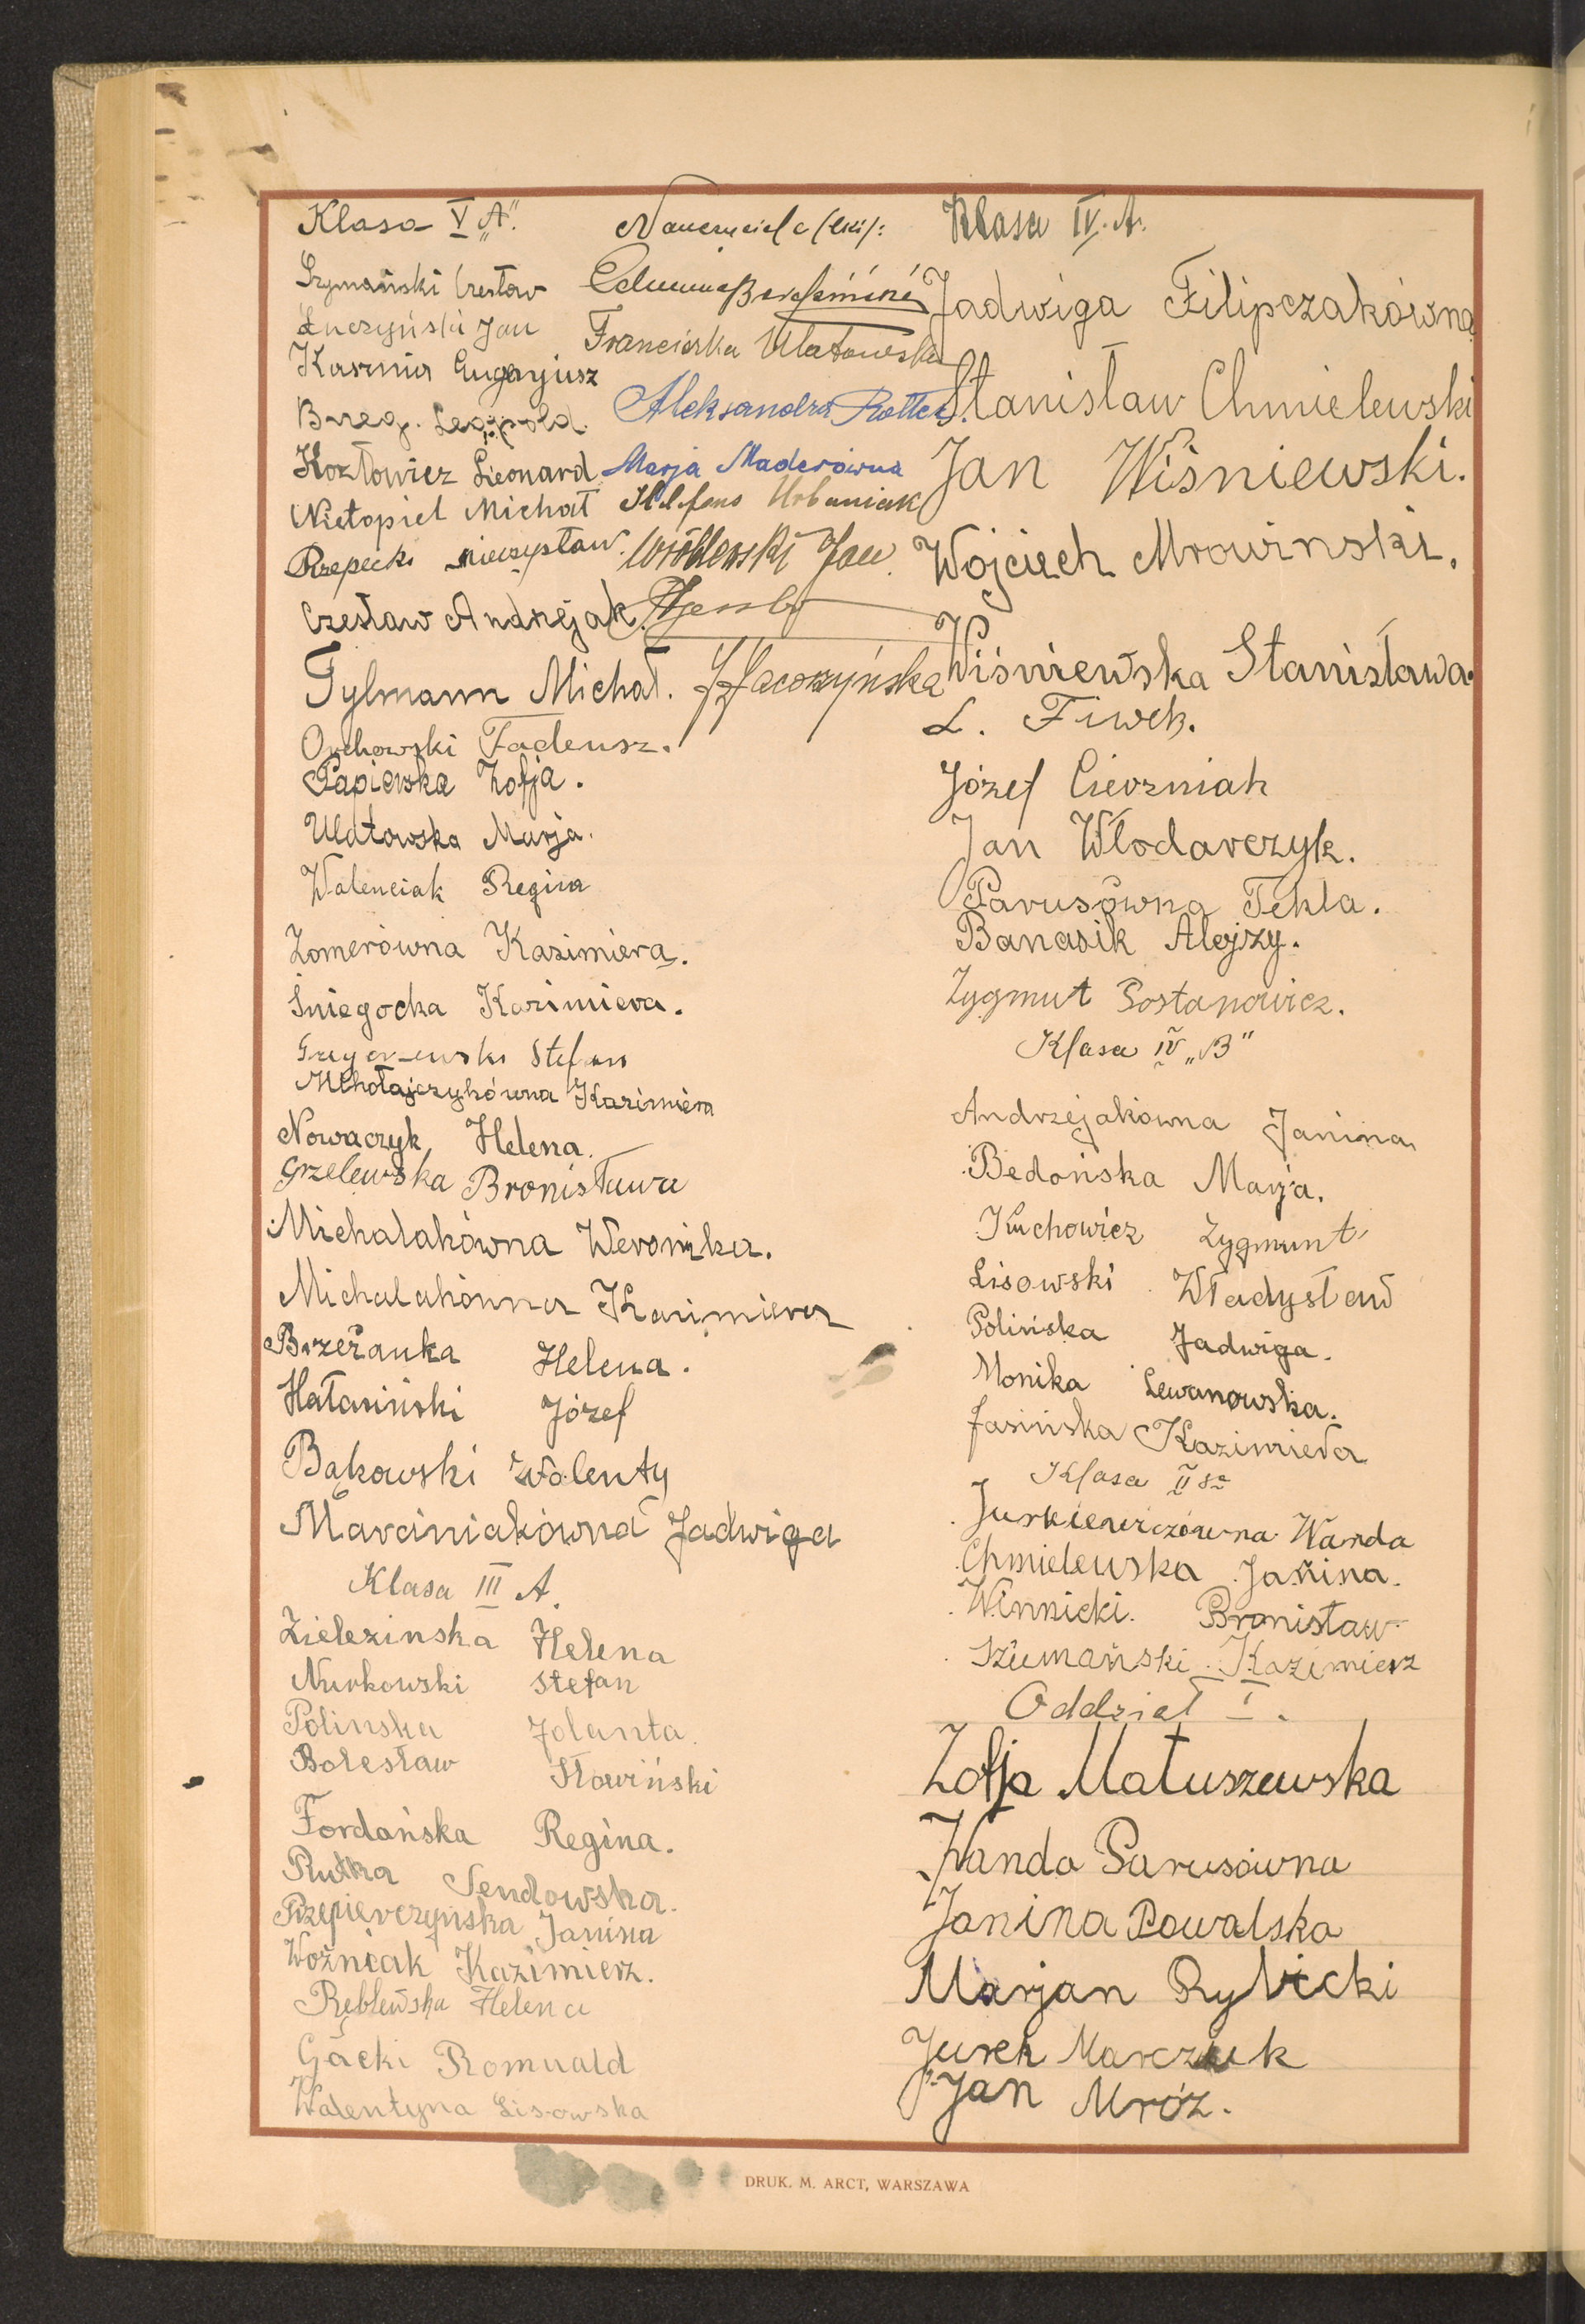 Klasa V "A".
Szymański Czesław
Łuczyński Jan
Kaszmir Eugenjusz
Breg. Leopold.
Kozłowicz Leonard
Nietopiel Michał
Rzepecki Mieczysław.
Czesław Andrzejak.
Tylmann Michał.
Orchowski Tadeusz.
Papierska Zofja.
Ulatowska Marja.
Walenciak Regina
Zomerówna Kazimiera.
Śniegocka Kazimiera.
Gregorzewski Stefan
Mikołajczykówna Kazimiera
Nowaczyk Helena.
Grzelewska Bronisława
Michalakówna Weronika.
Michalakówna Kazimiera
Brzezanka Helena.
Hałasiński Józef
Bąkowski Walenty
Marciniakówna Jadwiga
Klasa III A.
Zielezinska Helena
Nurkowski Stefan
Polinska Jolanta.
Bolesław Słowiński
Fordońska Regina.
Rutka Sendowska.
Przepierczyńska Janina
Woźniak Kazimierz.
Ręblewska Helena
Gącki Romuald
Walentyna Lisowska
Nauczyciele (lki):
Franciszka Ulatowska
Aleksandra Rotter.
Marja Maderówna
Ildefons Urbaniak
Wróblewski Jan.
Klasa IV. A.
Jadwiga Filipczakówna
Stanisław Chmielewski
Jan Wiśniewski.
Wojciech Mrowinski.
Wiśniewska Stanisława.
L. Fiwek.
Józef Cierzniak
Jan Włodarczyk.
Parusówna Tekla.
Banasik Alojzy.
Zygmut Postanowicz.
Klasa IV "B"
Andrzejakówna Janina
Bedońska Marja.
Kuchowicz Zygmunt
Lisowski Władysław
Polińska Jadwiga.
Monika Lewanowska.
Jasińska Kazimiera
Klasa II
Jurkiewiczówna Wanda
Chmielewska Janina.
Winnicki. Bronisław
Szumański Kazimierz
Oddział I.
Zofja Matuszewska
Wanda Parusówna
Janina Powalska
Marjan Rybicki
Jurek Marczuk
Jan Mróz.
DRUK. M. ARCT, WARSZAWA